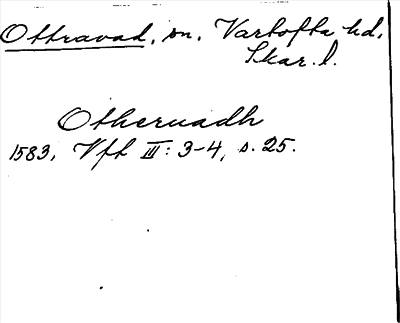 Ottravad, sn, Vartofta hd,
Skar. l.
Otheruadh
1583, Vft III: 3-4, s. 25.